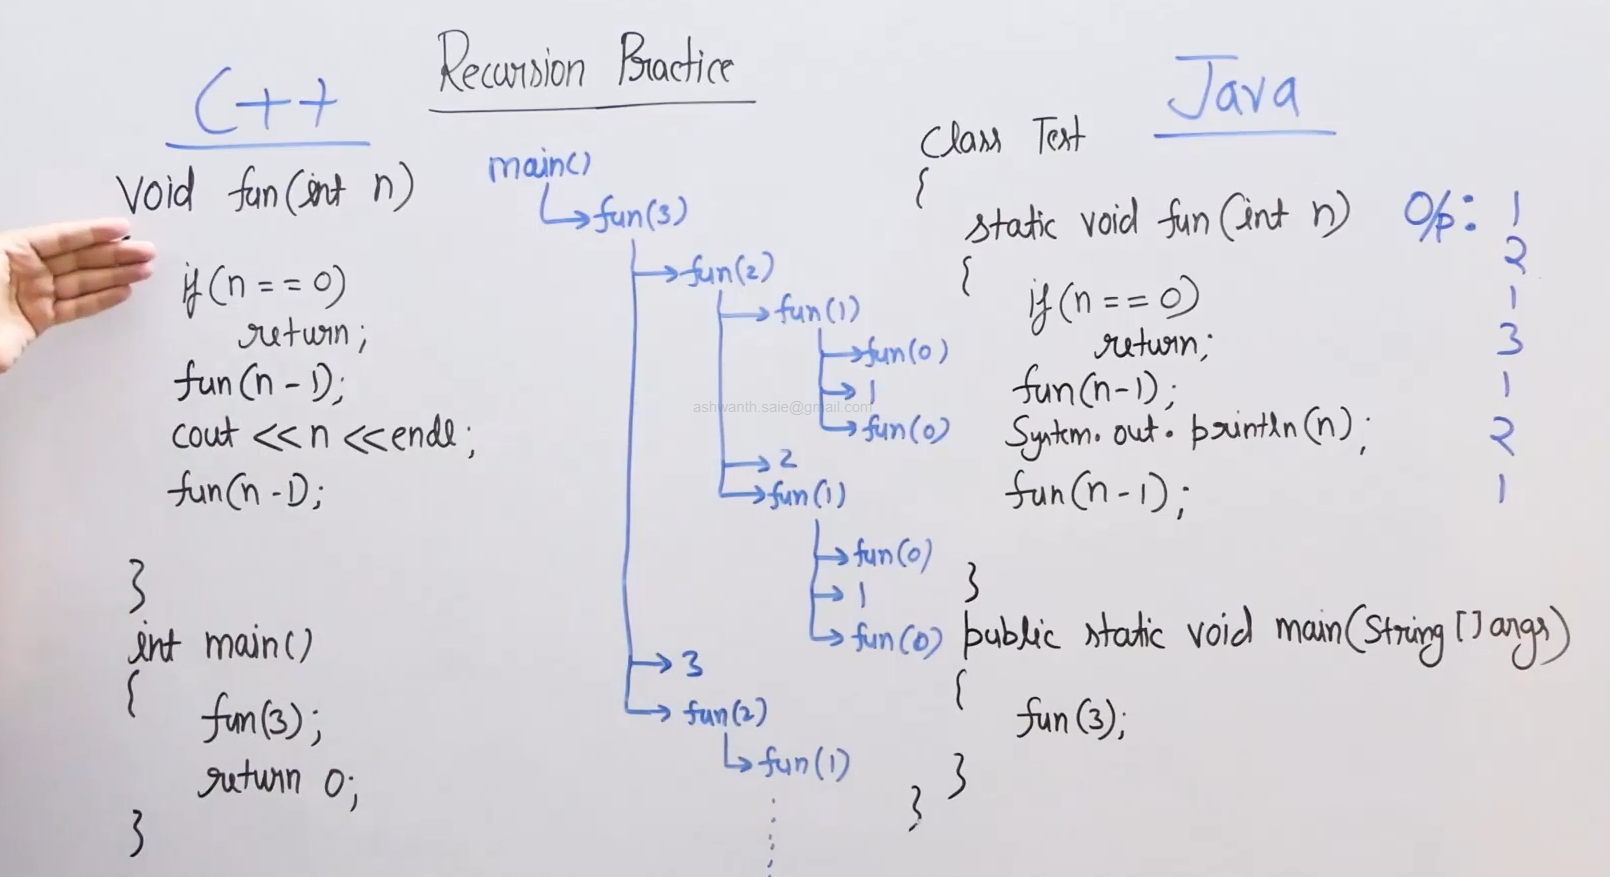 Recursion Practice
C++
void fun(int n)
if(n == 0)
return;
fun(n-1);
cout <<n <<endl;
fun(n-1);
}
int main()
{
fun(3);
return 0;
}
main()
fun(3)
fun(2)
fun(1)
fun(0)
1
fun(0)
2
fun(1)
fun(0)
1
fun(0)
3
fun(2)
fun(1)
ashwanth.saie@gmail.com
Java
Class Test
{
static void fun(int n)
{
if(n == 0)
return;
fun(n-1);
System.out.println(n);
fun(n-1);
}
public static void main(String [] args)
{
fun(3);
}
}
O/p: 1
2
1
3
1
2
1